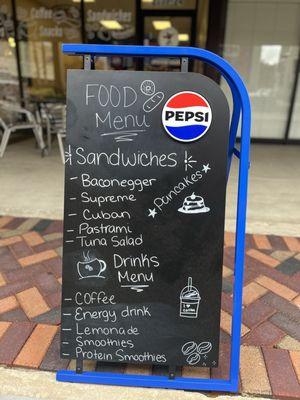 Coffee
Snacks
Sandwiches
FOOD
Menu
PEPSI
Sandwiches
- Baconegger
- Supreme
- Cuban
- Pastrami
- Tuna Salad
Pancakes
Drinks
Menu
- Coffee
- Energy drink
- Lemonade
- Smoothies
- Protein Smoothies
I ♥
COFFEE